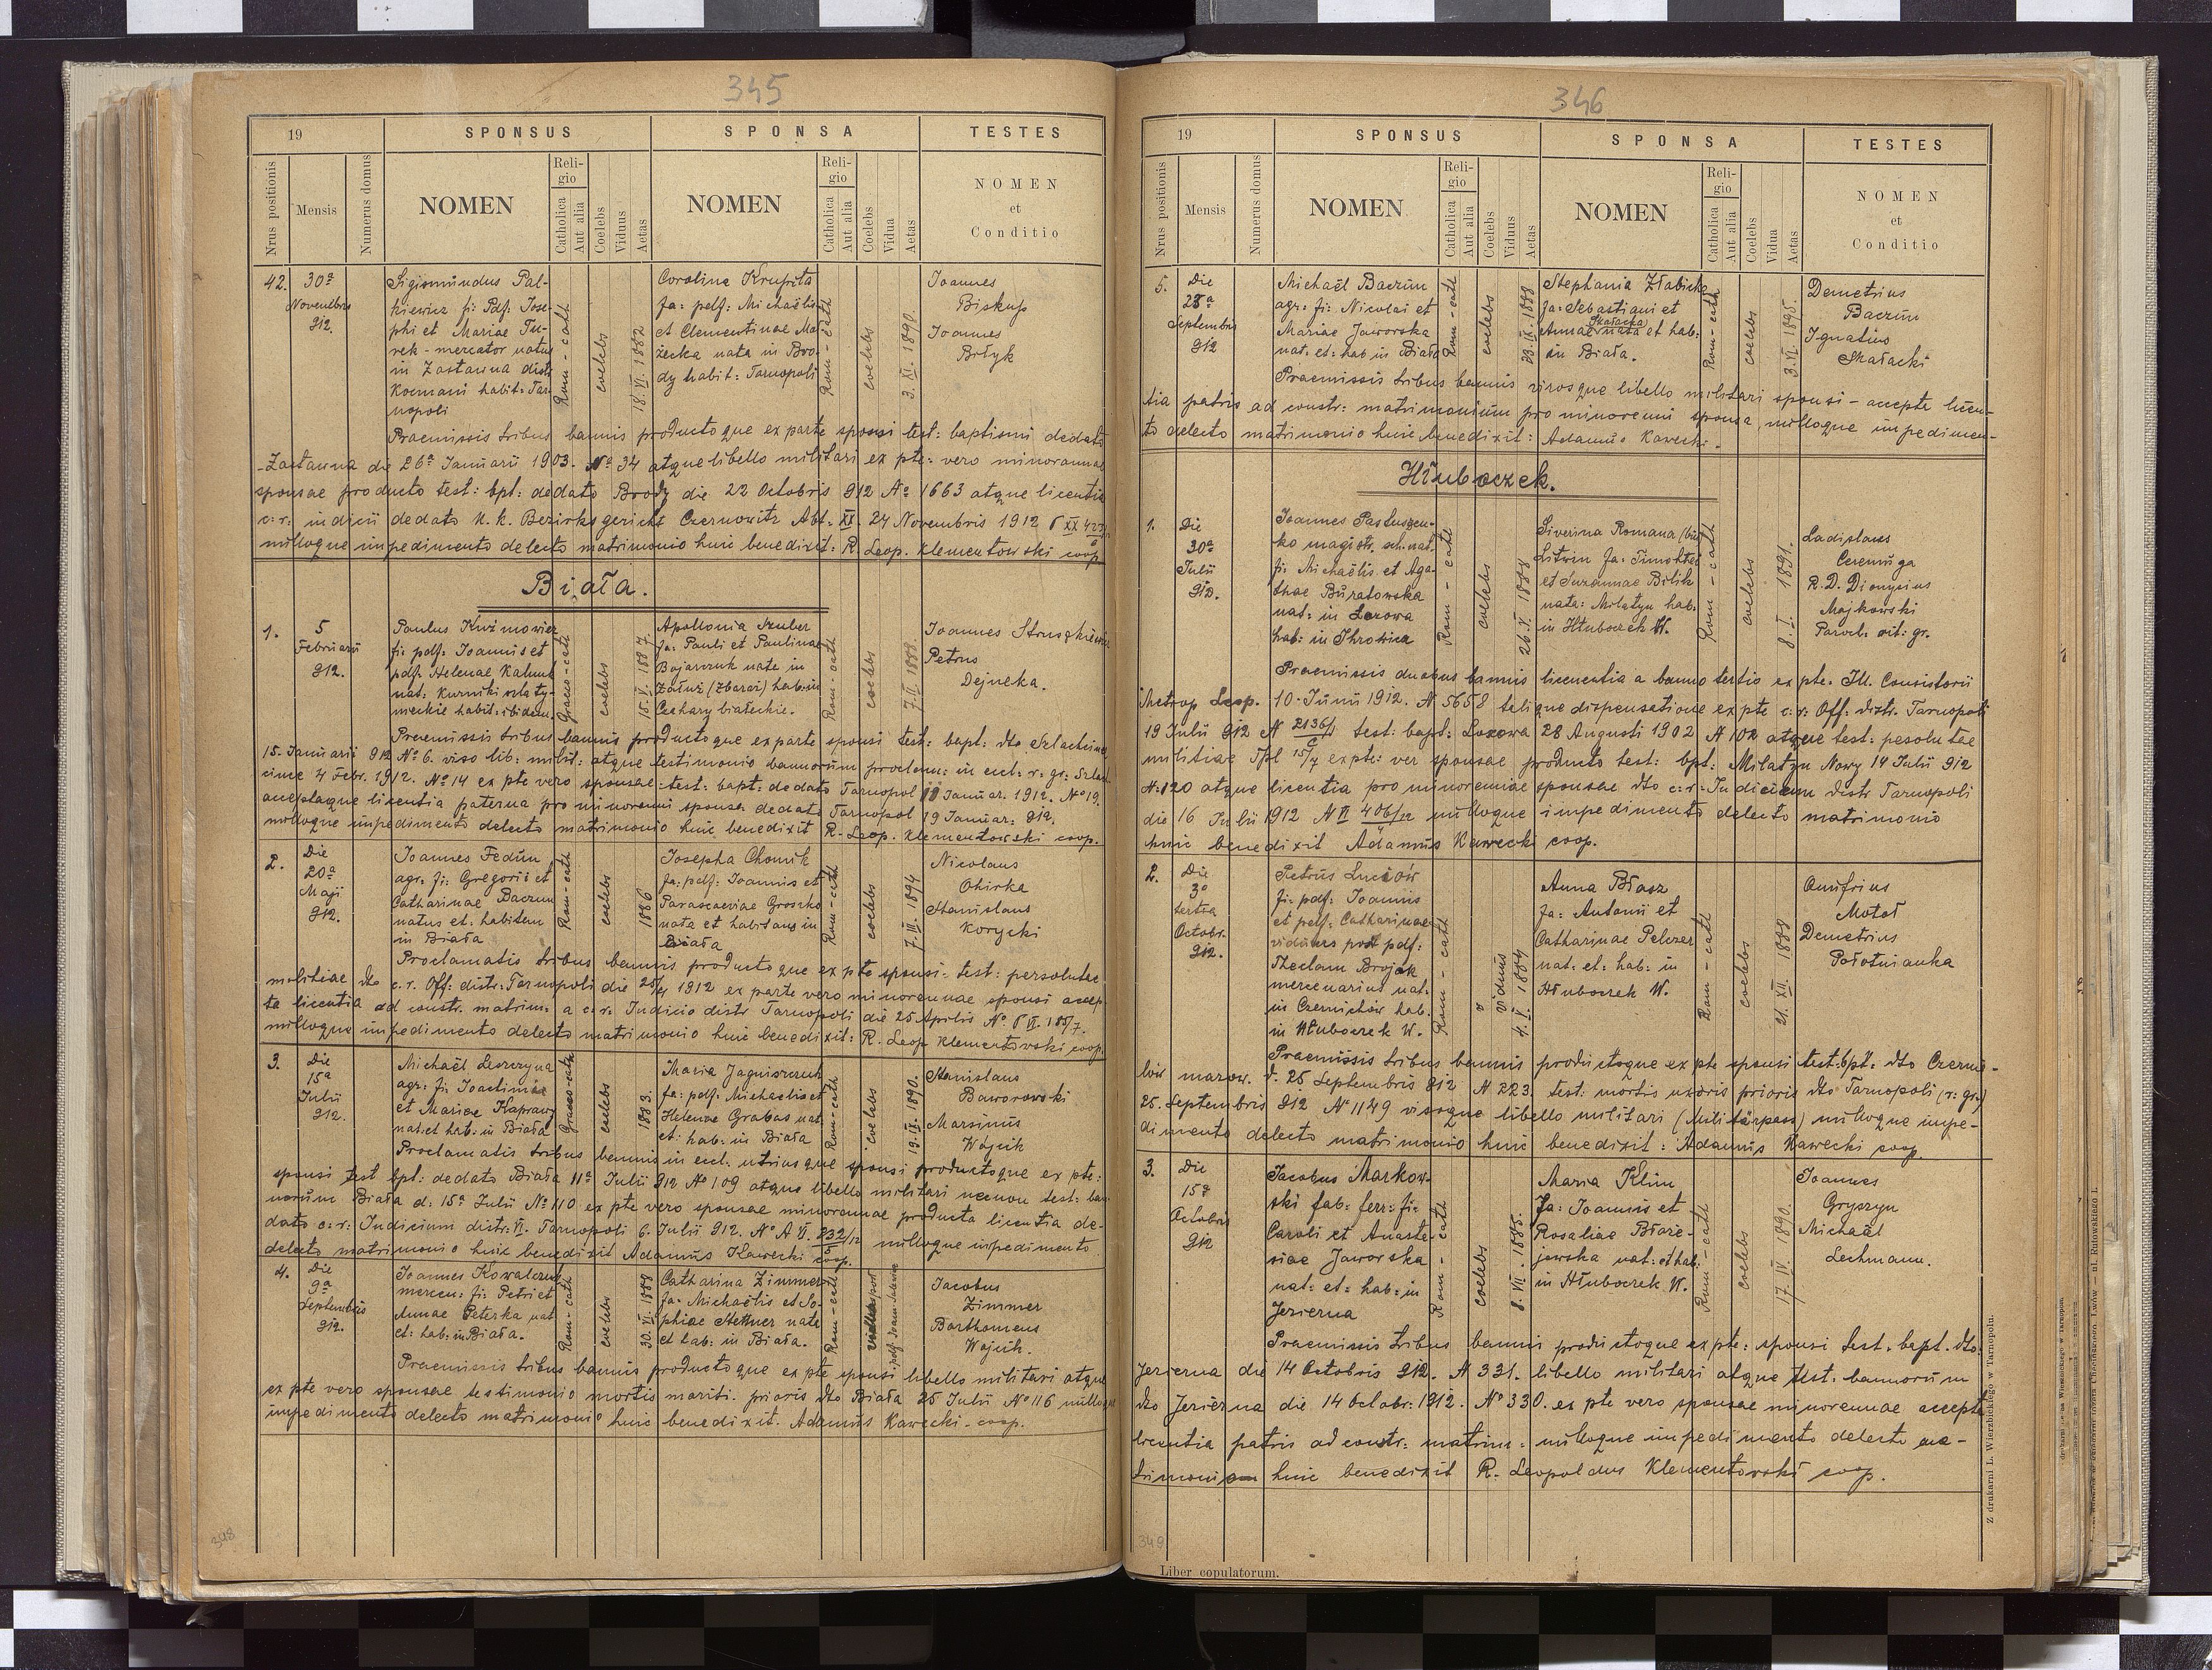 345
19
SPONSUS
SPONSA
TESTES
Nrus positionis
Mensis
Numerus domus
NOMEN
Religio
Catholica
Aut alia
Coelebs
Viduus
Aetas
NOMEN
Religio
Catholica
Aut alia
Coelebs
Vidua
Aetas
NOMEN
et
Conditio
42.
30a
Novembris
912.
Sigismundus Pal-
kiewicz fi: Pdf: Jose-
phi et Mariae Tu-
rek - mercator natus
in Zastawna distr
Kocmani habit: Tar-
nopoli
Rom - cath
coelebs
18. VI. 1882
Carolina Krupita
fa: pdf: Michaëlis
et Clementinae Mo-
żecka nata in Bro-
dy habit: Tarnopoli
Rom - cath
coelebs
3. XI. 1890.
Joannes
Biskup
Joannes
Bryk
Praemissis tribus bannis productoque ex parte sponsi test: baptismi dedato
Zastawna die 26a Januarii 1903. No 34 atque libello militari ex pte: vero minorannae
sponsae producto test: bpt: dedato Brody die 22 Octobris 912 No 1663 atque licentia
c: r: indicii dedato K. k. Bezirksgericht Czernowitz Abt: XI. 24 Novembris 1912
nulloque impedimento delecto matrimonio huic benedixit: R. Leop. Klementowski coop.
Biała.
1.
5
Februarii
912.
Paulus Kuźmowicz
fi: pdf: Joannis et
pdf: Helenae Kaluni
nat: Kurniki szlaty-
meckie habit: ibidem
Graeco-cath
coelebs
15. V. 1887.
Apollonia Szuber
fa: Pauli et Paulinae
Bojarczuk nata in
Załuż (Zbaraż) hab: in
Czehary białeckie.
Rom-cath
coelebs
7. II. 1888.
Joannes
Petrus
Dejneka.
Praemissis tribus bannis productoque ex parte sponsi test: bapt: dto
15. Januarii 912 No 6. viso lib: milit: atque testimonio bannorum proclam: in eccl: r: gr:
4 Febr. 1912. No 14 ex pte vero sponsae: test: bapt: dedato Tarnopol 18 Januar. 1912. No 19.
acceptaque licentia paterna pro minorenni sponsae dedato Tarnopol 19 Januar: 912.
nulloque impedimento delecto matrimonio huic benedixit R. Leop. Klementowski coop.
2.
Die
20a
Maji
912.
Joannes Fedun
agr. fi: Gregorii et
Catharinae Baczun
natus et: habitan
in Biała
Rom-cath
coelebs
1886
Josepha Chomik
fa: pdf: Joannis et
Parasceviae Groszko
nata et habitans in
Biała
Rom-cath
coelebs
7. III. 1894
Nicolaus
Ohirka
Stanislaus
Korycki
Proclamatis tribus bannis productoque ex pte sponsi: test: persolutae
militiae dto c. r. Off: distr: Tarnopoli die 25/4 1912 ex parte vero minorannae sponsi accep-
ta licentia ad constr. matrim: a c: r: Indicio distr Tarnopoli die 25 Aprilis No
nulloque impedimento delecto matrimonio huic benedixit: R. Leop Klementowski coop.
3.
Die
15a
Julii
912.
Michaël Leszczyna
agr: fi: Joactimia
et Mariae Kaprawy
nat: et hab: in Biała
Graeco-cath
coelebs
1883.
Maria Jagniszczuk
fa: pdf: Michaelis et
Helenae Grabas nat
et: hab: in Biała
Rom-cath
coelebs
19. IX. 1890.
Stanislaus
Baworowski
Marsinus
Wójcik
Proclamatis tribus bannis in eccl. utriusque sponsi productoque ex pte:
sponsi test bpt: dedato Biała 11a Julii 912 No 109 atque libello militari necnon test: ban-
norum Biała d: 15a Julii No 110 ex pte vero sponsae minorannae producta licentia de-
dato c: r: Indicium distr: VI. Tarnopoli 6. Julii 912. No A VI. 232/12 nulloque impedimento
delecto matrimonio huic benedixit Adamus Kawecki coop.
4.
Die
9a
Septembris
912.
Joannes Kowalczuk
mercen: fi: Petri et
Annae Peterka nat
et: hab: in Biała.
Rom-cath
coelebs
30. VI. 1888
Catharina Zimmer
fa: Michaëlis et So-
phiae Stettner nata
et hab: in Biała.
Rom-cath
vidua post
pdf: Joann:
Jacobus
Zimmer
Barthomeus
Wójcik.
Praemissis tribus bannis productoque ex pte sponsi libello militari atque
ex pte vero sponsae testimonio mortis mariti prioris dto Biała 25 Julii No 116 nulloque
impedimento delecto matrimonio huic benedixit. Adamus Kawecki - coop.
348
346
19
SPONSUS
SPONSA
TESTES
Nrus positionis
Mensis
Numerus domus
NOMEN
Religio
Catholica
Aut alia
Coelebs
Viduus
Aetas
NOMEN
Religio
Catholica
Aut alia
Coelebs
Vidua
Aetas
NOMEN
et
Conditio
5.
Die
28a
Septembris
912
Michaël Baczun
agr: fi: Nicolai et
Mariae Jaworska
nat: et: hab in Biała
Rom-cath
coelebs
23. IX. 1888
Stephania Złabicka
fa: Sebastiani et
Skałacka
Annae nata et hab:
in Biała.
Rom-cath
coelebs
3. VI. 1895.
Demetrius
Baczun
Ignatius
Skałacki
Praemissis tribus bannis visoque libello militari sponsi - accepta licen-
tia patris ad constr: matrimonium pro minorenni sponsa, nulloque impedimen-
to delecto matrimonio huic benedixit: Adamus Kawecki.
Hłuboczek.
1.
Die
30a
Julii
912.
Joannes Pastuszen-
ko magistr. sch: nat.
fi: Michaëlis et Aga-
thae Buratowska
nat: in Łozowa
hab: in Ihrowica
Rom - cath
coelebs
26. V. 1884
Siverina Romana
Litwin fa: Timothei
et Suzannae Bilik
nata: Milatyn hab.
in Hłuboczek W.
Rom - cath
coelebs
8. I. 1891.
Ladislaus
Ceremuga
R. D. Dionysius
Majkowski
Paroch. rit: gr.
Praemissis duobus bannis licentia a banno tertio ex pte. Ill. Consistorii
Metrop Leop. 10. Junii 1912. N 5658 talique dispensatione ex pte c: r: Off: distr. Tarnopoli
19 Julii 912 N 2136/1 test: bapt: Łozowa 28 Augusti 1902 N 102 atque test: pesolutae
militiae Tpl 15/7 ex pte: ver sponsae producto test: bpt: Milatyn Nowy 14 Julii 912
N: 120 atque licentia pro minorenniae sponsae dto c: r: Indicium distr Tarnopoli
die 16 Julii 1912 N VI 406/12 nulloque impedimento delecto matrimonio
huic benedixit Adamus Kawecki coop.
2.
Die
3o
tertia
Octobr.
912.
Petrus Luciów
fi: pdf: Joannis
et pdf: Catharinae
viduus post pdf:
Theclam Brojak
mercenarius nat:
in Czernichów hab:
in Hłuboczek W.
Rom - cath
viduus
4. V. 1884
Anna Błasz
fa: Antonii et
Catharinae Pelczer
nat: et: hab: in
Hłuboczek W.
Rom - cath
coelebs
21. XII. 1888
Onufrius
Motoł
Demetrius
Połotnianka
Praemissis tribus bannis productoque ex pte sponsi test: bpt: dto Czerni-
hów mazow. d. 25 Septembris 912 N 223. test: mortis uxoris prioris dto Tarnopoli (r: gr:)
25. Septembris 912 No 1149 visoque libello militari (Militärpass) nulloque impe-
dimento delecto matrimonio huic benedixit: Adamus Kawecki coop.
3.
Die
15a
Octobris
912
Jacobus Markow-
ski fab: ferr: fi:
Caroli et Anasta-
siae Jaworska
nat: et: hab: in
Jezierna
Rom - cath
coelebs
8. VII. 1885.
Maria Klim
fa: Joannis et
Rosaliae Błaże-
jewska nat: et hab:
in Hłuboczek W.
Rom-cath
coelebs
17. IV. 1890.
Joannes
Gryszyn
Michaël
Lechmann.
Praemissis tribus bannis productoque ex pte: sponsi test. bapt. dto:
Jezierna die 14 Octobris 912. N 331. libello militari atque test: bannorum
dto Jezierna die 14 Octobr: 1912. No 330. ex pte vero sponsae minorennae accepta
licentia patris ad constr: matrim: nulloque impedimento delecto ma-
trimonio huic benedixit R. Leopoldus Klementowski coop.
349
Liber copulatorum.
Z drukarni L. Wierzbickiego w Tarnopolu.